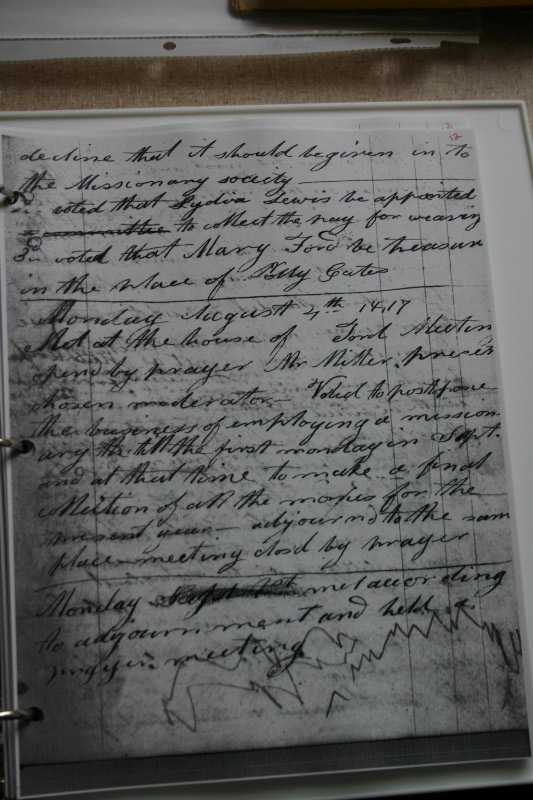 12
decline that it should be given in to
the Missionary society
voted that Lydia Lewis be appointed
a committee to collect the pay for weaving
3 voted that Mary Ford be treasur
in the place of Polly Gates
Monday August 4th 1417
Met at the house of Ford Meeting
opend by prayer Mr Miller
chosen moderator Voted to postpone
the business of employing a mission
ary till the first monday in Sept.
and at that time to make a final
collection of all the monies for the
present year adjournd to the sam
place meeting closd by prayer
Monday Sept 1st met according
to adjournment and held a
prayer meeting